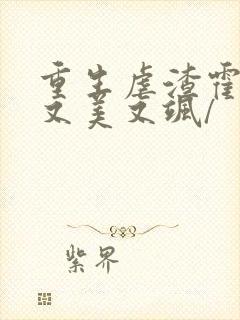 重生虐渣霍
又美又飒/
紫界